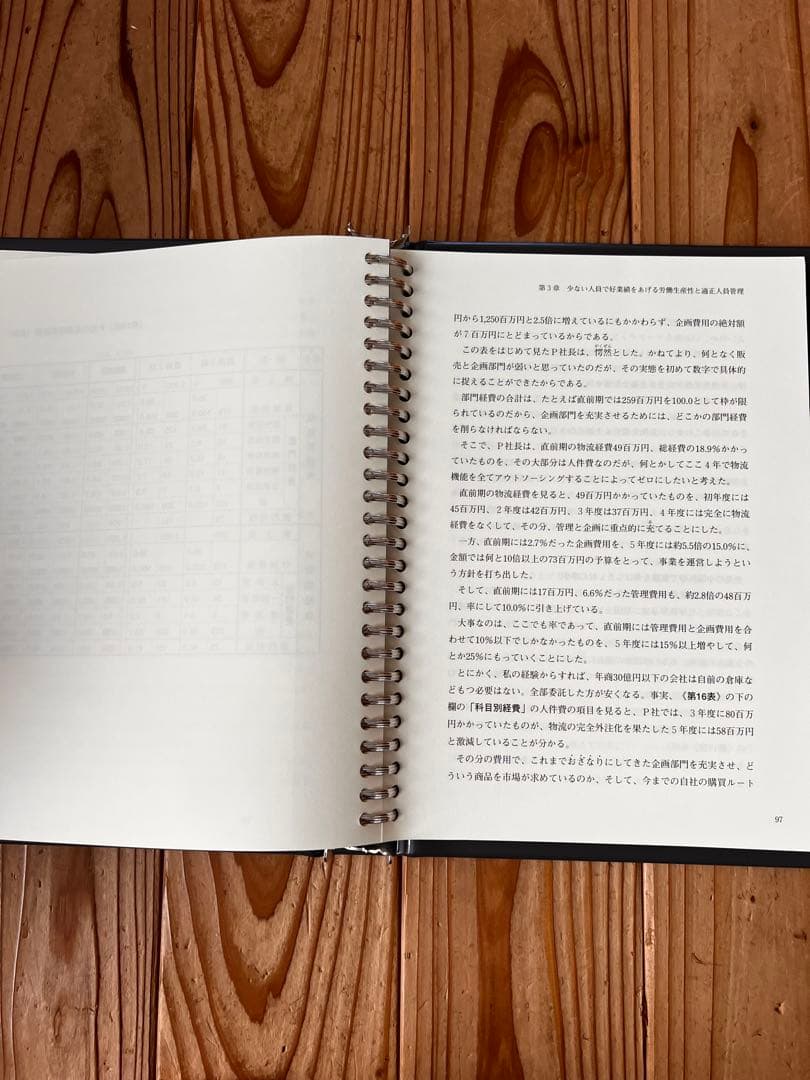 第3章 少ない人員で好業績をあげる労働生産性と適正人員管理
円から1,250百万円と2.5倍に増えているにもかかわらず、企画費用の絶対額
が7百万円にとどまっているからである。
この表をはじめて見たP社長は、愕然とした。かねてより、何となく販
売と企画部門が弱いと思っていたのだが、その実態を初めて数字で具体的
に捉えることができたからである。
部門経費の合計は、たとえば直前期では259百万円を100.0として枠が限
られているのだから、企画部門を充実させるためには、どこかの部門経費
を削らなければならない。
そこで、P社長は、直前期の物流経費49百万円、総経費の18.9%かかっ
ていたものを、その大部分は人件費なのだが、何とかしてここ4年で物流
機能を全てアウトソーシングすることによってゼロにしたいと考えた。
直前期の物流経費を見ると、49百万円かかっていたものを、初年度には
45百万円、2年度は42百万円、3年度は37百万円、4年度には完全に物流
経費をなくして、その分、管理と企画に重点的に充てることにした。
一方、直前期には2.7%だった企画費用を、5年度には約5.5倍の15.0%に、
金額では何と10倍以上の73百万円の予算をとって、事業を運営しようとい
う方針を打ち出した。
そして、直前期には17百万円、6.6%だった管理費用も、約2.8倍の48百万
円、率にして10.0%に引き上げている。
大事なのは、ここでも率であって、直前期には管理費用と企画費用を合
わせて10%以下でしかなかったものを、5年度には15%以上増やして、何
とか25%にもっていくことにした。
とにかく、私の経験からすれば、年商30億円以下の会社は自前の倉庫な
どもつ必要はない。全部委託した方が安くなる。事実、《第16表》の下の
欄の「科目別経費」の人件費の項目を見ると、P社では、3年度に80百万
円かかっていたものが、物流の完全外注化を果たした5年度には58百万円
と激減していることが分かる。
その分の費用で、これまでおざなりにしてきた企画部門を充実させ、ど
ういう商品を市場が求めているのか、そして、今までの自社の購買ルート
97